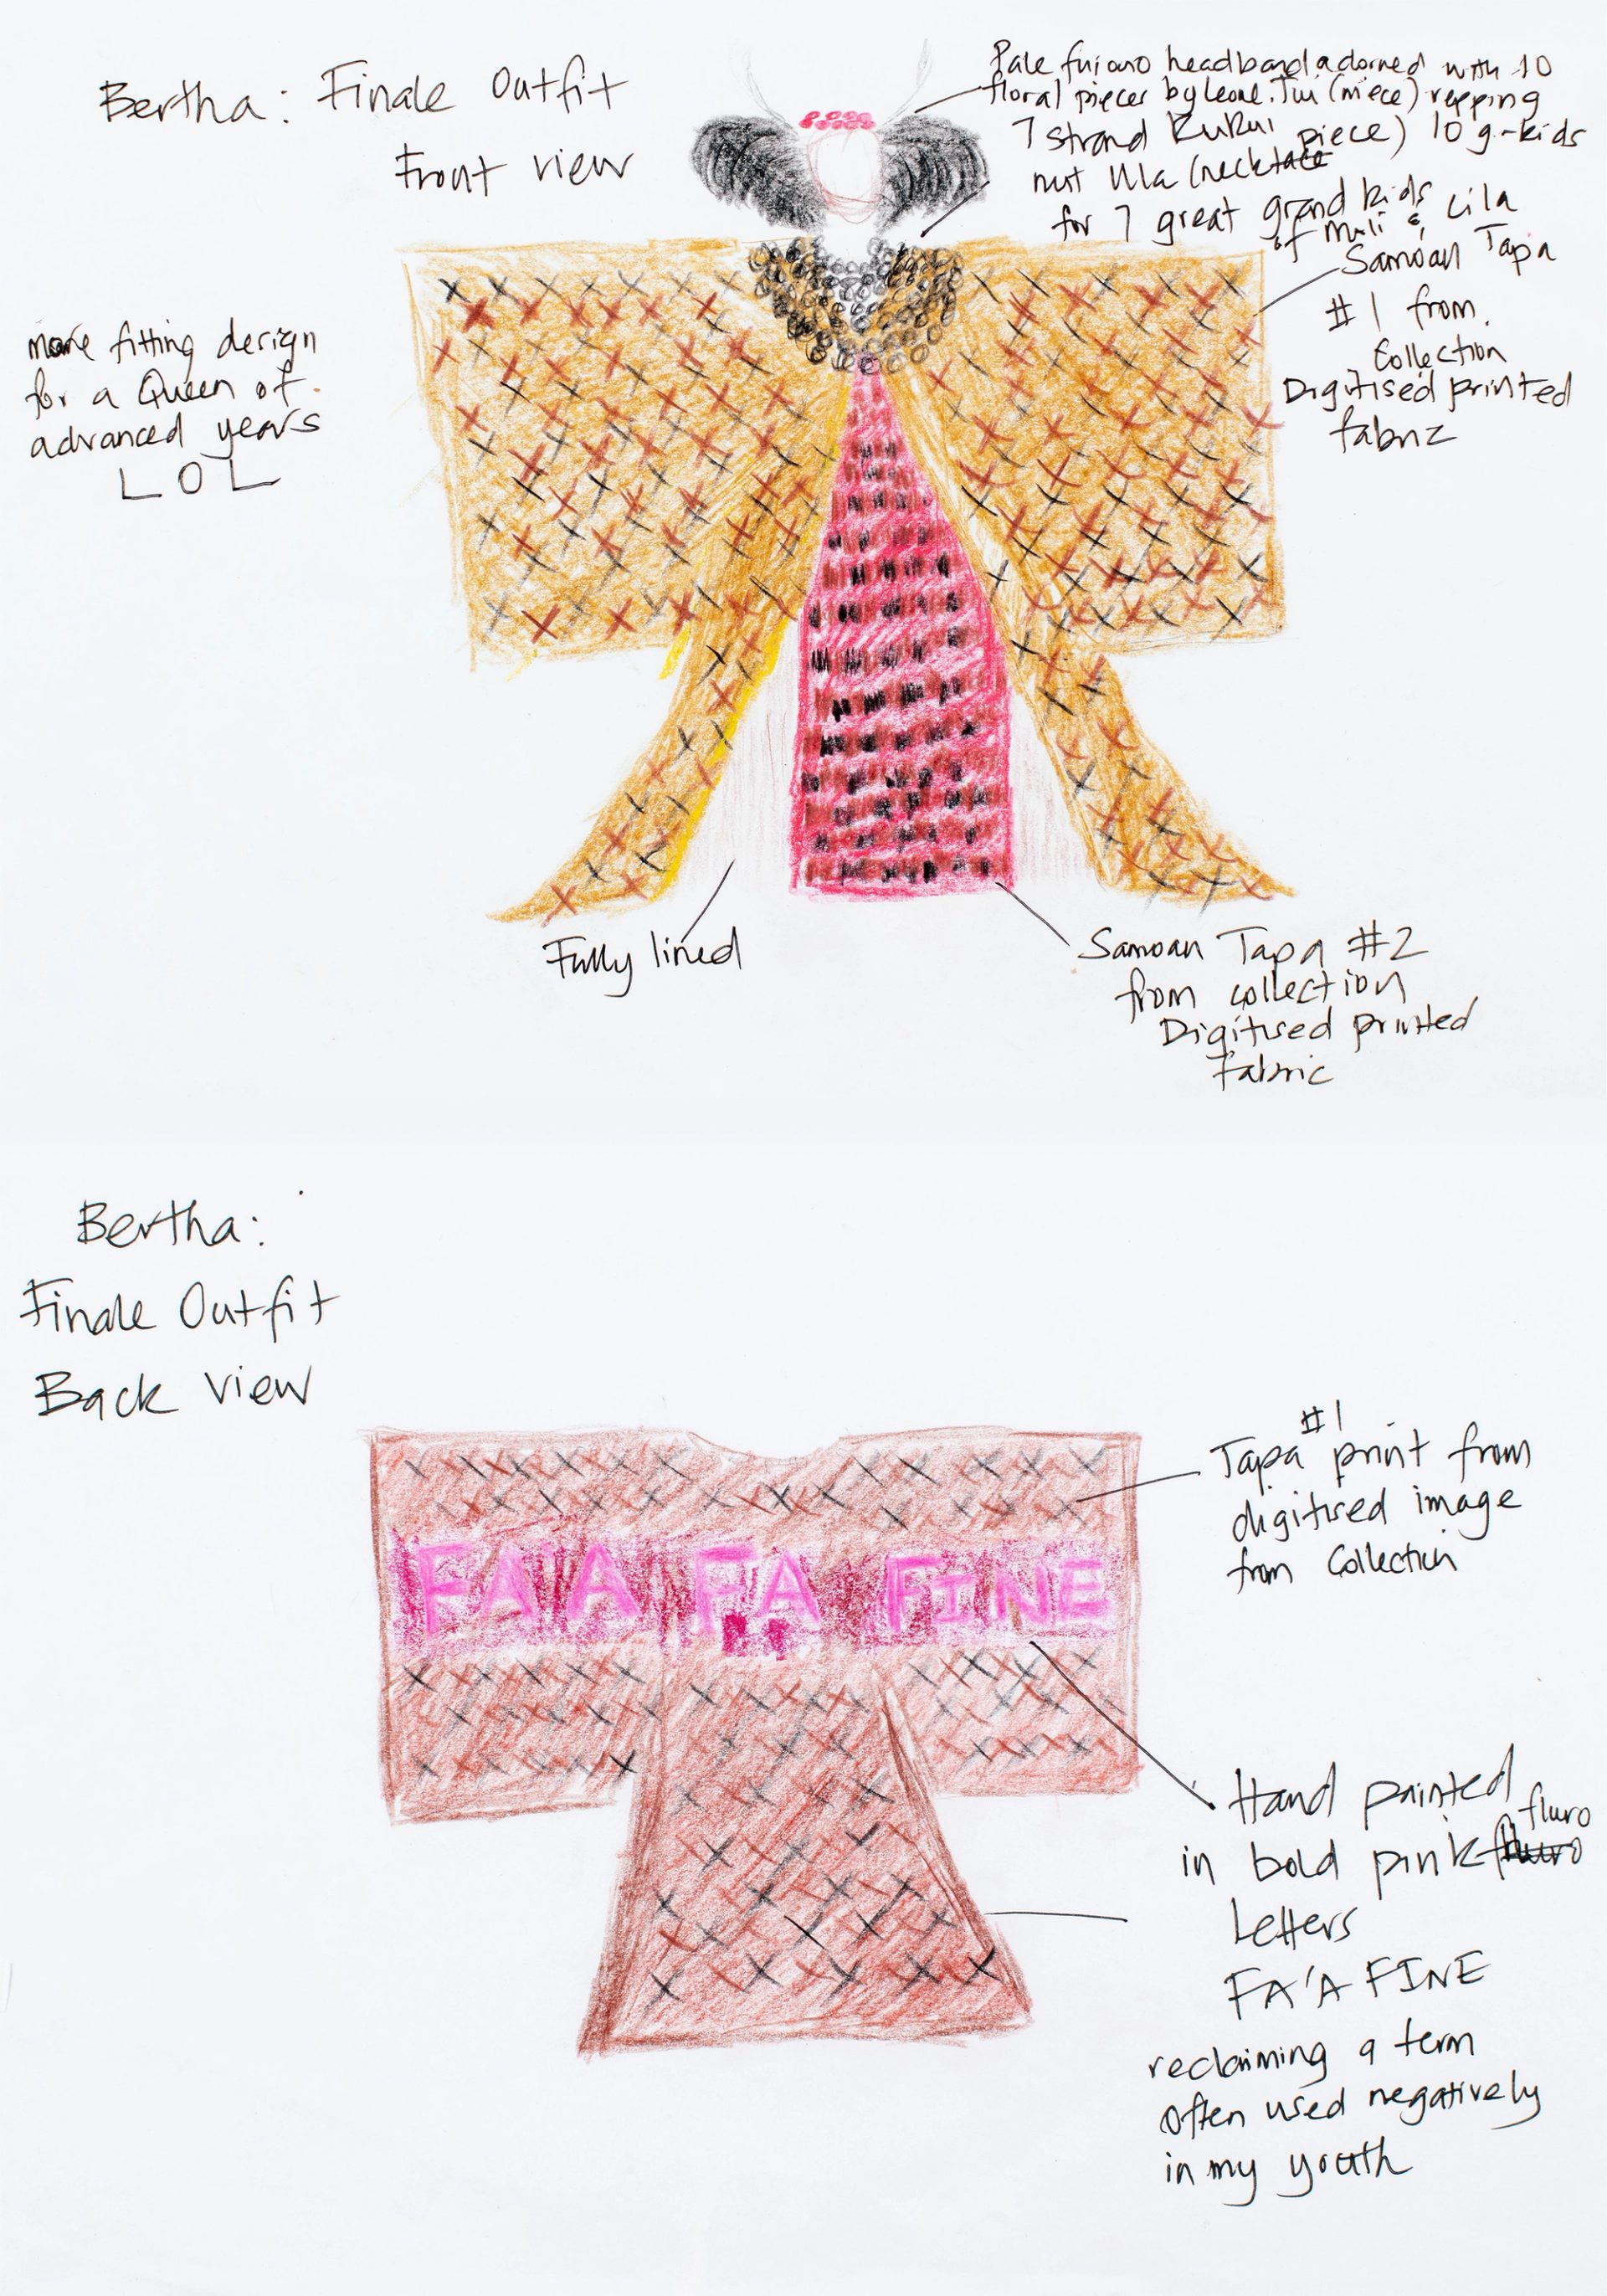 Bertha: Finale Outfit
Front view
Pale fuiono headband adorned with 10
floral pieces by Leone.Tiu (niece) repping
10 g-kids
7 strand Kukui
nut Ula (neck piece)
for 7 great grand kids
of Muli & Lila
Samoan Tapa
#1 from
Collection
Digitised printed
fabric
more fitting design
for a Queen of
advanced years
LOL
Fully lined
Samoan Tapa #2
from collection
Digitised printed
Fabric
Bertha:
Finale Outfit
Back view
#1
Tapa print from
digitised image
from Collection
FA'A FA FINE
Hand painted
in bold pink fluro
Letters
FA'A FINE
reclaiming a term
often used negatively
in my youth